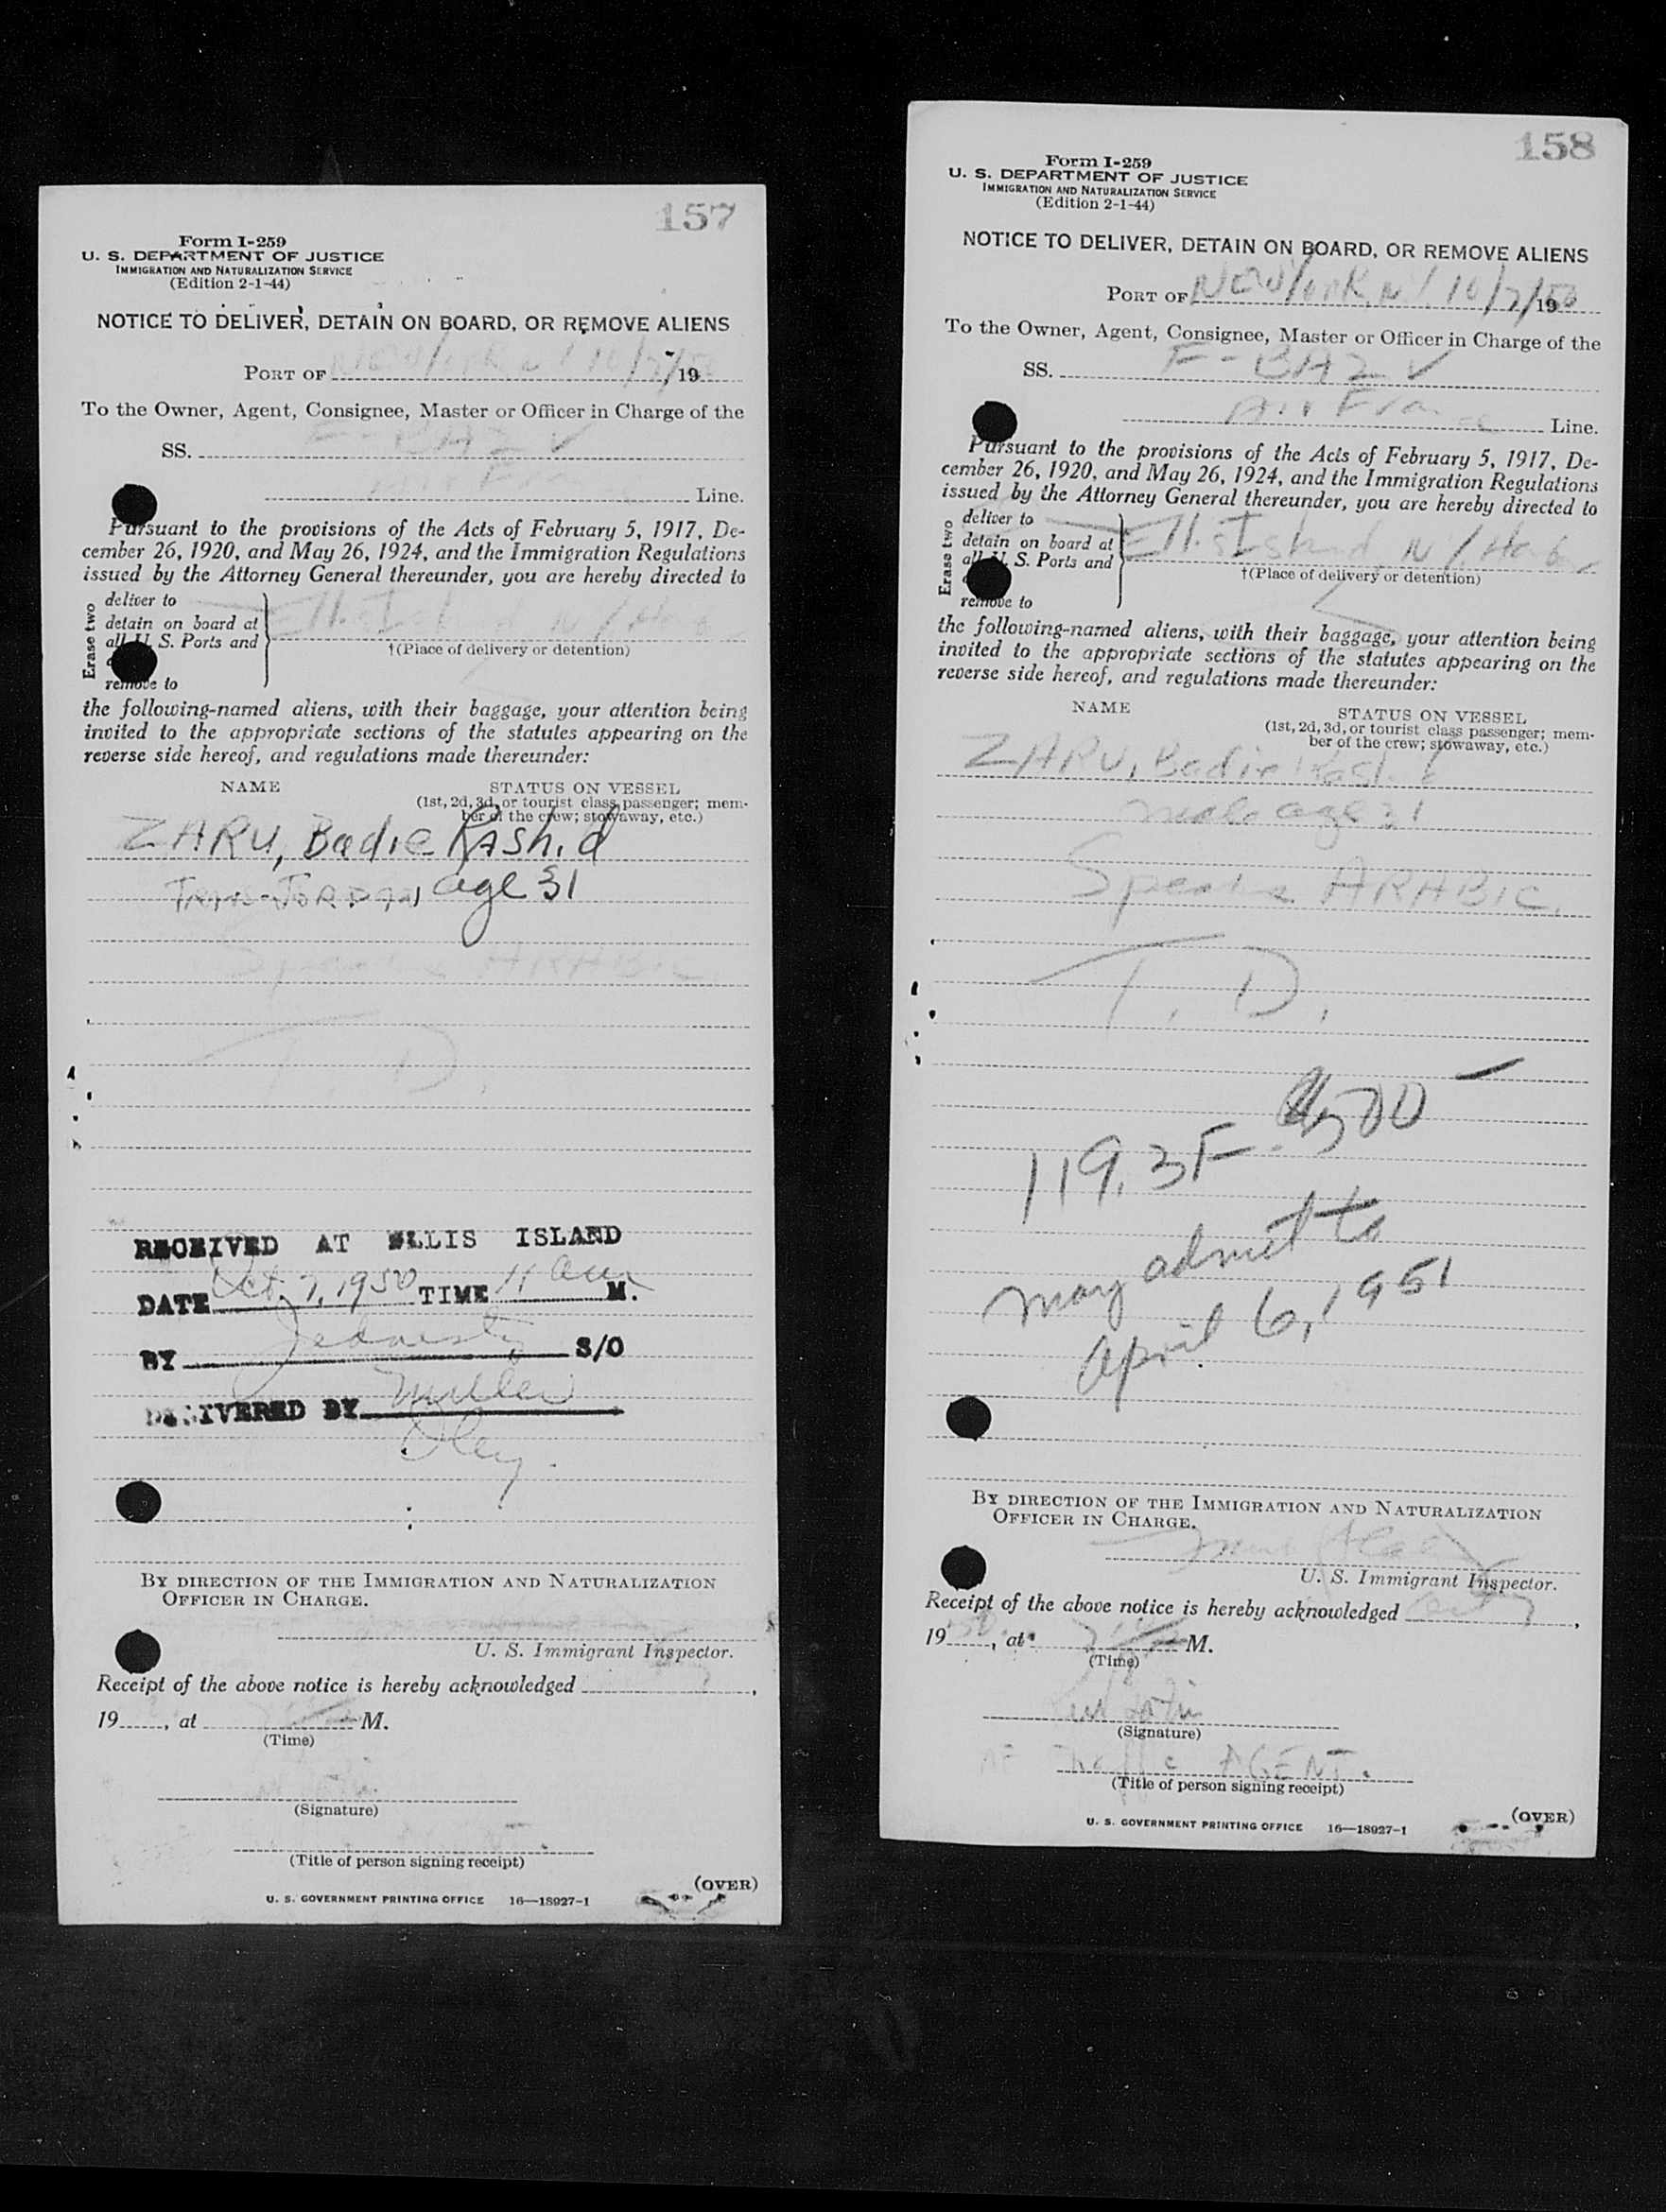 157
Form I-259
U. S. DEPARTMENT OF JUSTICE
IMMIGRATION AND NATURALIZATION SERVICE
(Edition 2-1-44)
NOTICE TO DELIVER, DETAIN ON BOARD, OR REMOVE ALIENS
PORT OF New York N Y 10/7/ 19
To the Owner, Agent, Consignee, Master or Officer in Charge of the
SS. F-BAZV
Air France Line.
Pursuant to the provisions of the Acts of February 5, 1917, De-
cember 26, 1920, and May 26, 1924, and the Immigration Regulations
issued by the Attorney General thereunder, you are hereby directed to
Erase two
deliver to
detain on board at
all U. S. Ports and
remove to
Ellis Island N Y
†(Place of delivery or detention)
the following-named aliens, with their baggage, your attention being
invited to the appropriate sections of the statutes appearing on the
reverse side hereof, and regulations made thereunder:
NAME STATUS ON VESSEL
(1st, 2d, 3d, or tourist class passenger; mem-
ber of the crew; stowaway, etc.)
ZARU, Badie Rashid
TRANS-JORDAN, age 31
Speaks ARABIC.
T. D.
RECEIVED AT ELLIS ISLAND
DATE Oct. 7, 1950 TIME 11 am M.
BY S/O
DELIVERED BY Miller
BY DIRECTION OF THE IMMIGRATION AND NATURALIZATION
OFFICER IN CHARGE.
U. S. Immigrant Inspector.
Receipt of the above notice is hereby acknowledged ,
19 , at M.
(Time)
(Signature)
(Title of person signing receipt)
(OVER)
U. S. GOVERNMENT PRINTING OFFICE 16—18927-1
158
Form I-259
U. S. DEPARTMENT OF JUSTICE
IMMIGRATION AND NATURALIZATION SERVICE
(Edition 2-1-44)
NOTICE TO DELIVER, DETAIN ON BOARD, OR REMOVE ALIENS
PORT OF New York N Y 10/7/ 1950
To the Owner, Agent, Consignee, Master or Officer in Charge of the
SS. F-BAZV
Air France Line.
Pursuant to the provisions of the Acts of February 5, 1917, De-
cember 26, 1920, and May 26, 1924, and the Immigration Regulations
issued by the Attorney General thereunder, you are hereby directed to
Erase two
deliver to
detain on board at
all U. S. Ports and
remove to
Ellis Island N Y Harbor
†(Place of delivery or detention)
the following-named aliens, with their baggage, your attention being
invited to the appropriate sections of the statutes appearing on the
reverse side hereof, and regulations made thereunder:
NAME STATUS ON VESSEL
(1st, 2d, 3d, or tourist class passenger; mem-
ber of the crew; stowaway, etc.)
ZARU, Badie Rashid
male age 31
Speaks ARABIC.
T. D.
119.3F - $500 —
may admit to
April 6, 1951
BY DIRECTION OF THE IMMIGRATION AND NATURALIZATION
OFFICER IN CHARGE.
U. S. Immigrant Inspector.
Receipt of the above notice is hereby acknowledged ,
1950, at M.
(Time)
(Signature)
AF Traffic AGENT.
(Title of person signing receipt)
(OVER)
U. S. GOVERNMENT PRINTING OFFICE 16—18927-1